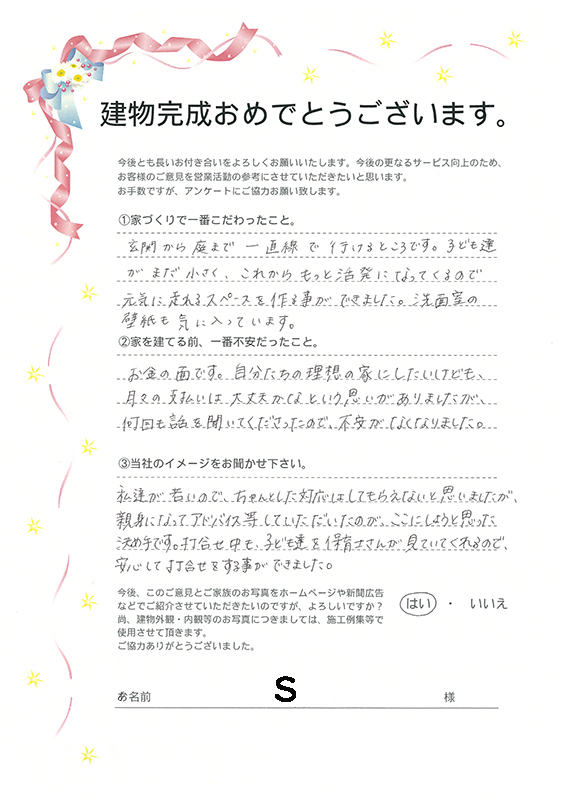 建物完成おめでとうございます。
今後とも長いお付き合いをよろしくお願いいたします。今後の更なるサービス向上のため、
お客様のご意見を営業活動の参考にさせていただきたいと思います。
お手数ですが、アンケートにご協力お願い致します。
①家づくりで一番こだわったこと。
玄関から庭まで一直線で行けるところです。子ども達
がまだ小さく、これからもっと活発になってくるので
元気に走れるスペースを作る事ができました。洗面室の
壁紙も気に入っています。
②家を建てる前、一番不安だったこと。
お金の面です。自分たちの理想の家にしたいけども、
月々の支払いは大丈夫かなという思いがありましたが、
何回も話を聞いてくださったので、不安がなくなりました。
③当社のイメージをお聞かせ下さい。
私達が若いので、ちゃんとした対応はしてもらえないと思いましたが、
親身になってアドバイス等していただいたのが、ここにしようと思った
決め手です。打合せ中も、子ども達を保育士さんが見ていてくれるので、
安心して打合せをする事ができました。
今後、このご意見とご家族のお写真をホームページや新聞広告
などでご紹介させていただきたいのですが、よろしいですか？
はい ・ いいえ
尚、建物外観・内観等のお写真につきましては、施工例集等で
使用させて頂きます。
ご協力ありがとうございました。
お名前 S 様